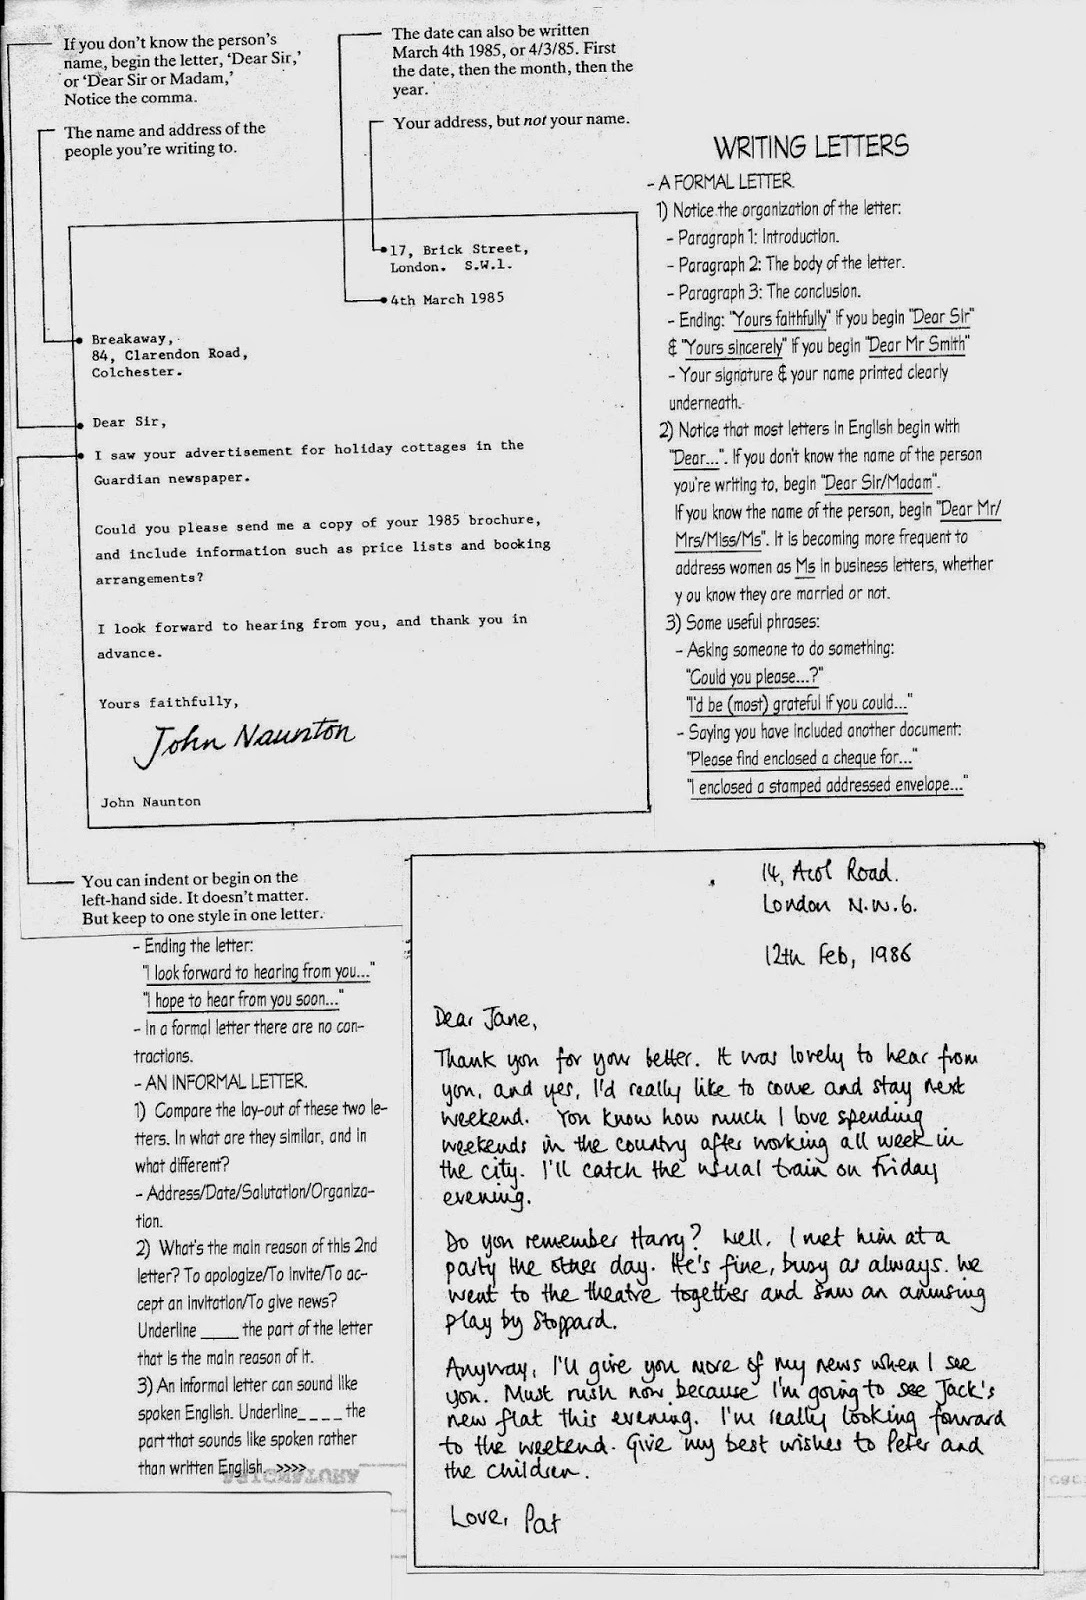 If you don't know the person's
name, begin the letter, 'Dear Sir,'
or 'Dear Sir or Madam,'
Notice the comma.
The name and address of the
people you're writing to.
The date can also be written
March 4th 1985, or 4/3/85. First
the date, then the month, then the
year.
Your address, but not your name.
17, Brick Street,
London. S.W.1.
4th March 1985
Breakaway,
84, Clarendon Road,
Colchester.
Dear Sir,
I saw your advertisement for holiday cottages in the
Guardian newspaper.
Could you please send me a copy of your 1985 brochure,
and include information such as price lists and booking
arrangements?
I look forward to hearing from you, and thank you in
advance.
Yours faithfully,
John Naunton
John Naunton
You can indent or begin on the
left-hand side. It doesn't matter.
But keep to one style in one letter.
WRITING LETTERS
- A FORMAL LETTER.
1) Notice the organization of the letter:
- Paragraph 1: Introduction.
- Paragraph 2: The body of the letter.
- Paragraph 3: The conclusion.
- Ending: "Yours faithfully" if you begin "Dear Sir"
& "Yours sincerely" if you begin "Dear Mr Smith"
- Your signature & your name printed clearly
underneath.
2) Notice that most letters in English begin with
"Dear...". If you don't know the name of the person
you're writing to, begin "Dear Sir/Madam".
If you know the name of the person, begin "Dear Mr/
Mrs/Miss/Ms". It is becoming more frequent to
address women as Ms in business letters, whether
y ou know they are married or not.
3) Some useful phrases:
- Asking someone to do something:
"Could you please...?"
"I'd be (most) grateful if you could..."
- Saying you have included another document:
"Please find enclosed a cheque for..."
"I enclosed a stamped addressed envelope..."
- Ending the letter:
"I look forward to hearing from you..."
"I hope to hear from you soon..."
- In a formal letter there are no con-
tractions.
- AN INFORMAL LETTER.
1) Compare the lay-out of these two le-
tters. In what are they similar, and in
what different?
- Address/Date/Salutation/Organiza-
tion.
2) What's the main reason of this 2nd
letter? To apologize/To invite/To ac-
cept an invitation/To give news?
Underline ____ the part of the letter
that is the main reason of it.
3) An informal letter can sound like
spoken English. Underline_ _ _ _ the
part that sounds like spoken rather
than written English. >>>>
14, Acol Road.
London N.W.6.
12th Feb, 1986
Dear Jane,
Thank you for your letter. It was lovely to hear from
you, and yes, I'd really like to come and stay next
weekend. You know how much I love spending
weekends in the country after working all week in
the city. I'll catch the usual train on Friday
evening.
Do you remember Harry? Well, I met him at a
party the other day. He's fine, busy as always. We
went to the theatre together and saw an amusing
play by Stoppard.
Anyway, I'll give you more of my news when I see
you. Must rush now because I'm going to see Jack's
new flat this evening. I'm really looking forward
to the weekend. Give my best wishes to Peter and
the children.
Love, Pat